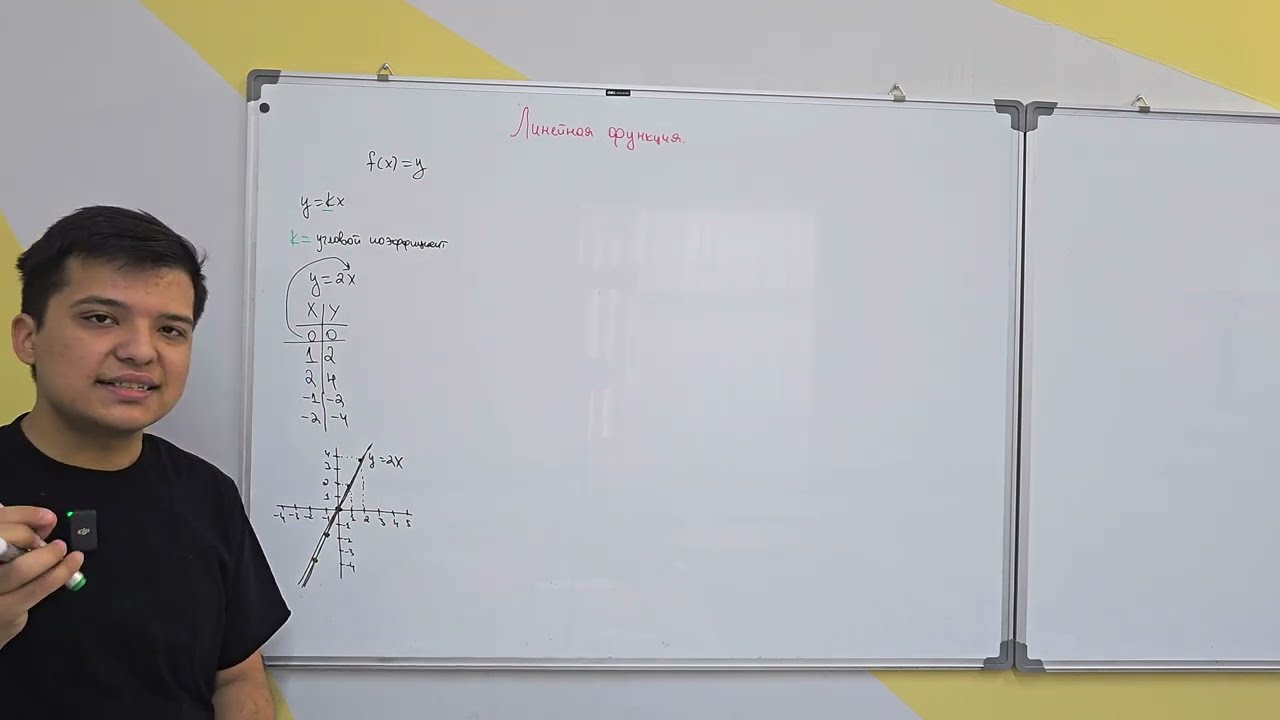 Линейная функция
f(x) = y
y = kx
k = угловой коэффициент
y = 2x
x | y
0 | 0
1 | 2
2 | 4
-1 | -2
-2 | -4
y = 2x
4
3
2
1
-4 -3 -2 -1 1 2 3 4 5
-1
-2
-3
-4
dji